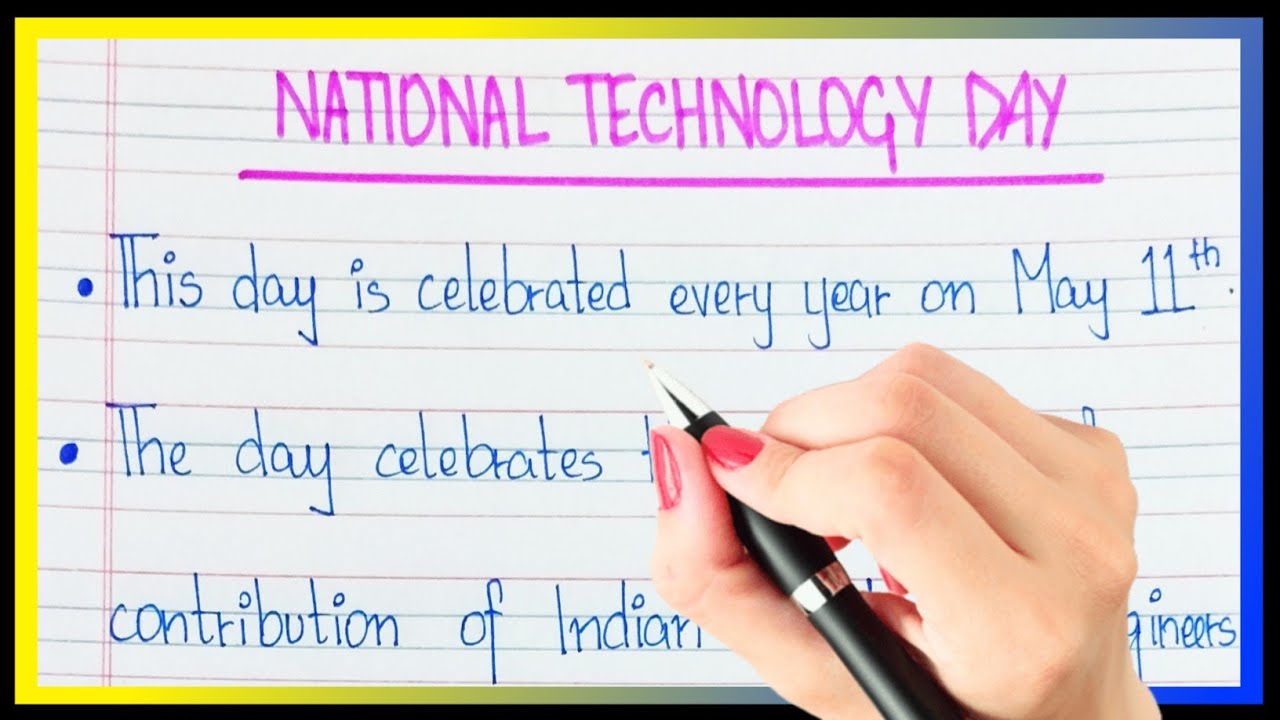 NATIONAL TECHNOLOGY DAY
• This day is celebrated every year on May 11th.
• The day celebrates
contribution of Indian